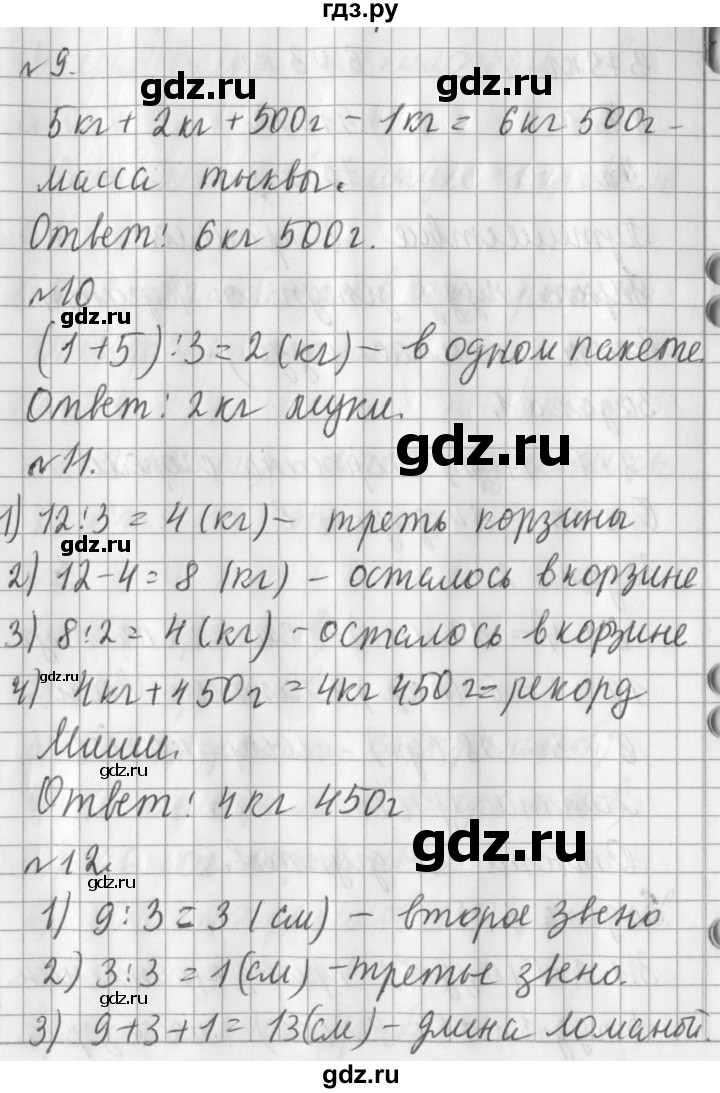 гдз.ру
№9.
gdz.ru gdz.ru
5кг + 2кг + 500г - 1кг = 6кг 500г -
масса тыквы.
Ответ: 6кг 500г.
№10
gdz.ru
(1+5):3=2(кг) - в одном пакете.
Ответ: 2кг муки.
gdz.ru
№11.
1) 12:3 = 4(кг) - треть корзины
gdz.ru
2) 12-4=8 (кг) - осталось в корзине
3) 8:2=4(кг) - осталось в корзине
gdz.ru
4) 4кг+450г=4кг 450г=рекорд
Миши.
gdz.ru
Ответ: 4кг 450г
gdz.ru
№12.
gdz.ru
1) 9:3=3 (см) - второе звено
2) 3:3=1(см) - третье звено.
gdz.ru gdz.ru
3) 9+3+1=13(см) - длина ломаной.
gdz.ru